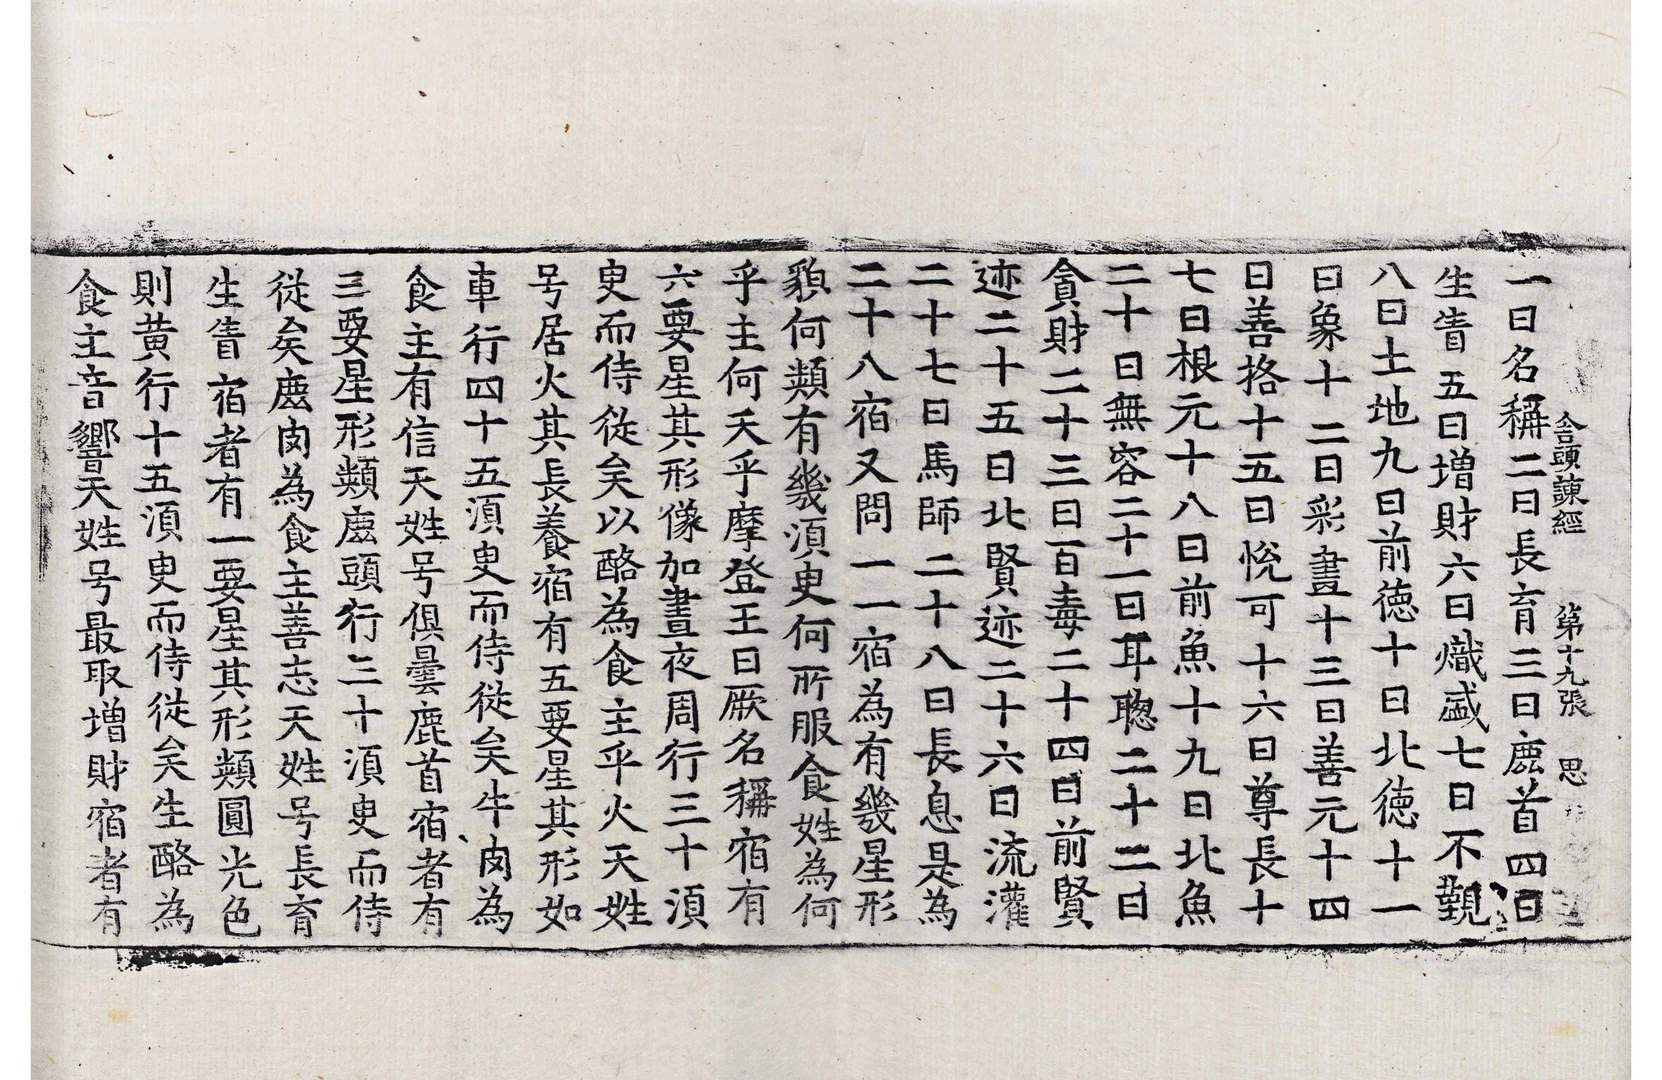 舎頭諫經　第十九張　思
一曰名稱二曰長育三曰鹿首四曰
生眚五曰増財六曰熾盛七曰不覲
八曰土地九曰前徳十曰北徳十一
曰象十二曰彩畫十三曰善元十四
曰善挌十五曰恱可十六曰尊長十
七曰根元十八曰前魚十九曰北魚
二十曰無容二十一曰耳聦二十二曰
貪財二十三曰百毒二十四曰前賢
迹二十五曰北賢迹二十六曰流灌
二十七曰馬師二十八曰長息是為
二十八宿又問一一宿為有幾星形
貌何類有幾湏㬰何所服食姓為何
乎主何天乎摩登王曰厥名稱宿有
六要星其形像加晝夜周行三十湏
㬰而侍従矣以酪為食主乎火天姓
号居火其長養宿有五要星其形如
車行四十五湏㬰而侍従矣牛肉為
食主有信天姓号俱曇鹿首宿者有
三要星形類鹿頭行三十湏㬰而侍
従矣鹿肉為食主善志天姓号長育
生眚宿者有一要星其形類圓光色
則黄行十五湏㬰而侍従矣生酪為
食主音響天姓号最取増財宿者有